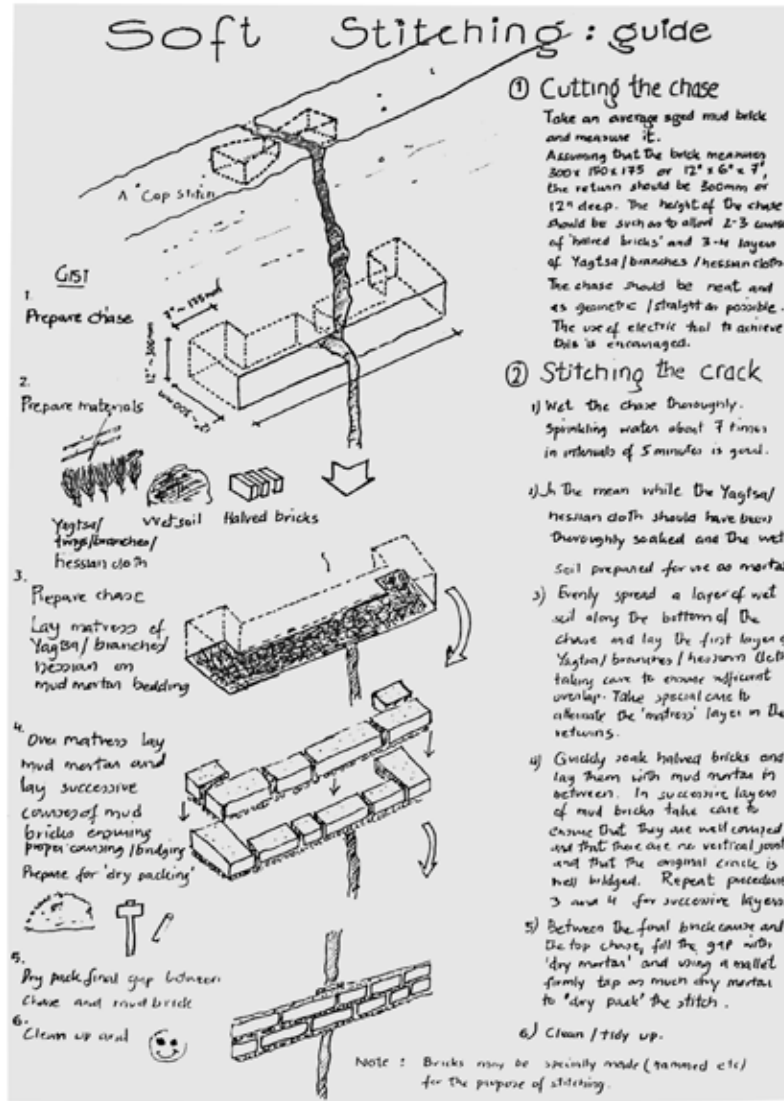 Soft Stitching : guide
A 'Cap stitch'
GIST
1.
Prepare chase
7" ~ 175mm
12" ~ 300mm
12" ~ 300mm
2.
Prepare materials
Yagtsa/
twigs/branches/
hessian cloth
Wet soil
Halved bricks
3.
Prepare chase
Lay matress of
Yagtsa/ branches/
hessian on
mud mortar bedding
4.
Over matress lay
mud mortar and
lay successive
courses of mud
bricks ensuring
proper coursing/bridging
Prepare for 'dry packing'
5.
Dry pack final gap between
chase and mud brick
6.
Clean up and
① Cutting the chase
Take an average sized mud brick
and measure it.
Assuming that the brick measures
300 x 150 x 175 or 12" x 6" x 7",
the return should be 300mm or
12" deep. The height of the chase
should be such as to allow 2-3
of 'halved bricks' and 3-4 layers
of Yagtsa/branches/hessian cloth
The chase should be neat and
as geometric /straight as possible.
The use of electric tool to achieve
this is encouraged.
② Stitching the crack
1) Wet the chase thoroughly.
Sprinkling water about 7 times
in intervals of 5 minutes is good.
2) In the mean while the Yagtsa/
hessian cloth should have been
thoroughly soaked and the wet
soil prepared for use as mortar
3) Evenly spread a layer of wet
soil along the bottom of the
chase and lay the first layer
Yagtsa/branches/hessian cloth
taking care to ensure sufficient
overlap. Take special care to
alternate the 'matress' layer in the
returns.
4) Quickly soak halved bricks and
lay them with mud mortar in
between. In successive layers
of mud bricks take care to
ensure that they are well coursed
and that there are no vertical joint
and that the original crack is
well bridged. Repeat procedure
3 and 4 for successive layers
5) Between the final brick course and
the top chase, fill the gap with
'dry mortar' and using a mallet
firmly tap as much dry mortar
to 'dry pack' the stitch.
6) Clean / tidy up.
Note : Bricks may be specially made (rammed etc)
for the purpose of stitching.